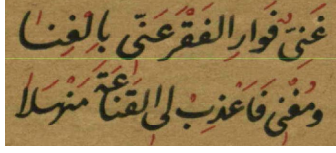 غَنِيٌّ فَوَارِ الفَقْرَ عَنّى بِالْغِنَا
وَمُغْنٍ فَاَعْذِبْ لِى القَنَاعَةَ مَنْهَلَا